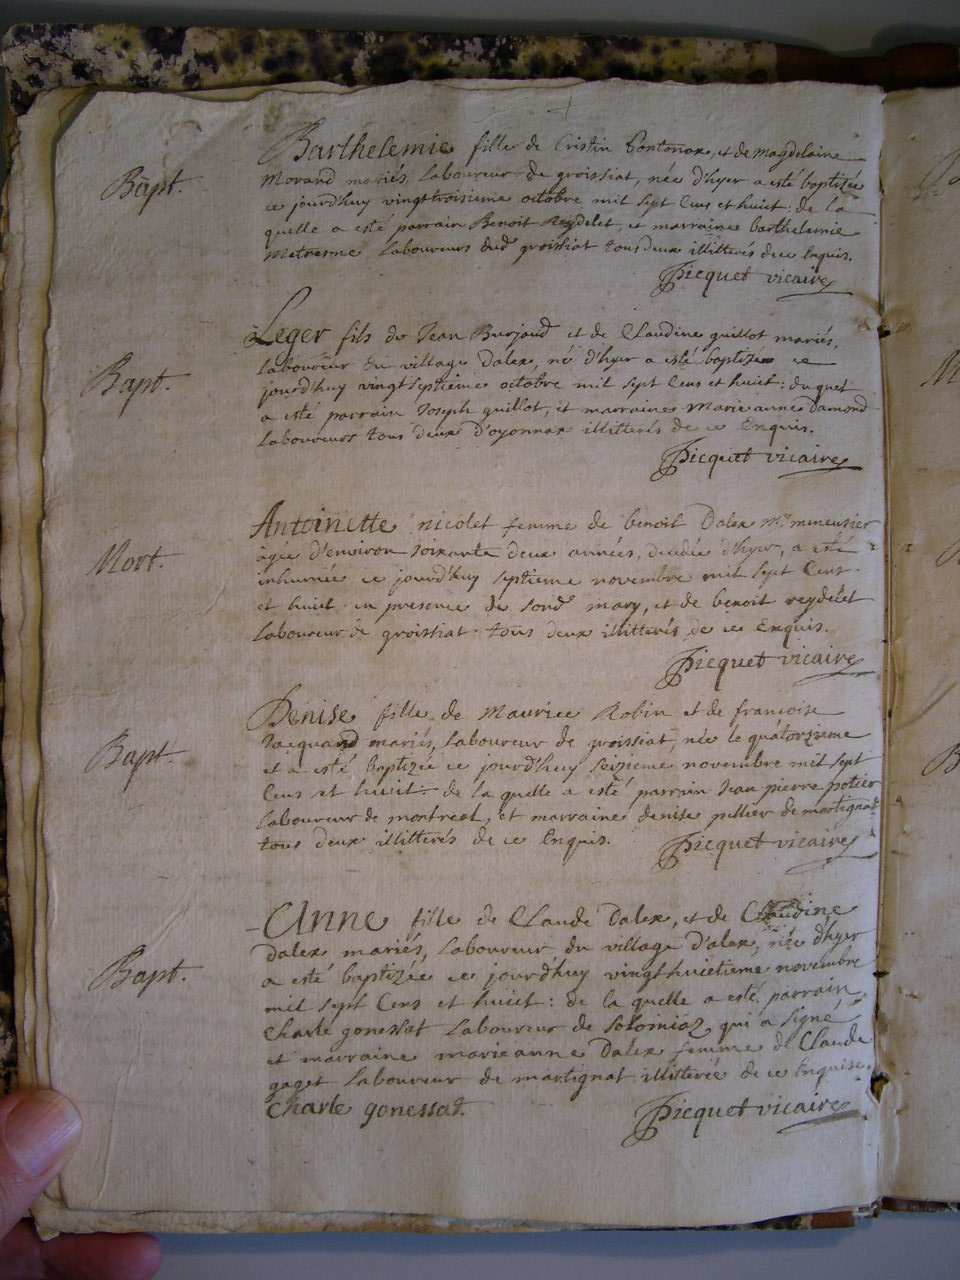 Bapt.
Barthelemie fille de Cristin Pontonox, et de Magdelaine
Morand mariés, laboureur de groissiat, née d'hyer a esté baptizée
ce jourdhuy vingttroisieme octobre mil sept Cens et huict: de la
quelle a esté parrain Benoit Reydelet, et marraine barthelemie
laboureurs dud groissiat tous deux illitterés de ce Enquis.
Picquet vicaire
Bapt.
Leger fils de Jean Burjaud et de Claudine guillot mariés,
laboureur du village Dalex, né d'hyer a esté baptizé ce
jourdhuy vingtseptieme octobre mil sept Cens et huict: duquel
a esté parrain Joseph guillot, et marraine Marie anne Damond
Laboureurs tous deux d'oyonnax illitterés de ce Enquis.
Picquet vicaire
Mort.
Antoinette nicolet femme de benoit Dalex Mre meneusier
agée d'environ soixante deux années, decedée d'hyer, a esté
inhumée ce jourd'huy septieme novembre mil sept Cens
et huict en presence de sond mary, et de benoit reydelet
laboureur de groissiat tous deux illitterés de ce Enquis.
Picquet vicaire
Bapt.
Denise fille de Maurice Robin et de francoise
Jacquand mariés, laboureur de groissiat, née le quatorzieme
et a esté baptizée ce jourd'huy seizieme novembre mil sept
Cens et huict: de la quelle a esté parrain Jean pierre potier
laboureur de montreal, et marraine denise pillier de martignat
tous deux illitterés de ce Enquis. Picquet vicaire
Bapt.
Anne fille de Claude Dalex, et de Claudine
Dalex mariés, laboureur du village d'alex, née d'hyer
a esté baptizée ce jourd'huy vingthuictieme novembre
mil sept Cens et huict: de la quelle a esté parrain
Charle gonessat laboureur de Solomiaz qui a signé
et marraine marieanne Dalex femme de Claude
gaget laboureur de martignat illitterée de ce Enquise.
Charle gonessat. Picquet vicaire